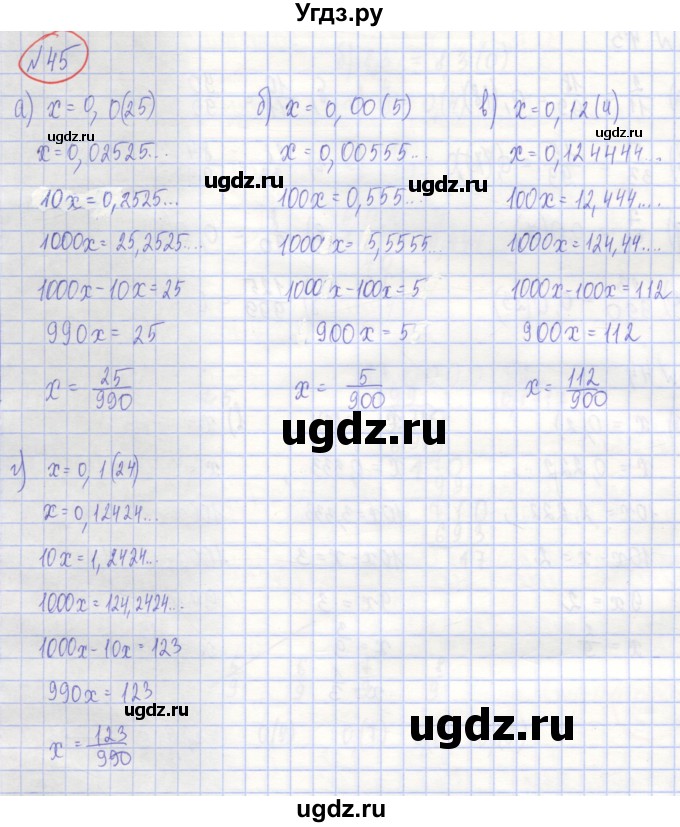 Угдз.ру
№45
а) x = 0,0(25)
x = 0,02525...
10x = 0,2525...
1000x = 25,2525...
1000x - 10x = 25
990x = 25
x = 25/990
б) x = 0,00(5)
x = 0,00555...
100x = 0,555...
1000x = 5,5555...
1000x - 100x = 5
900x = 5
x = 5/900
в) x = 0,12(4)
x = 0,124444...
100x = 12,444....
1000x = 124,44....
1000x - 100x = 112
900x = 112
x = 112/900
г) x = 0,1(24)
x = 0,12424...
10x = 1,2424...
1000x = 124,2424...
1000x - 10x = 123
990x = 123
x = 123/990
ugdz.ru
ugdz.ru
ugdz.ru
ugdz.ru
ugdz.ru
ugdz.ru
ugdz.ru
ugdz.ru
ugdz.ru
ugdz.ru
ugdz.ru
ugdz.ru